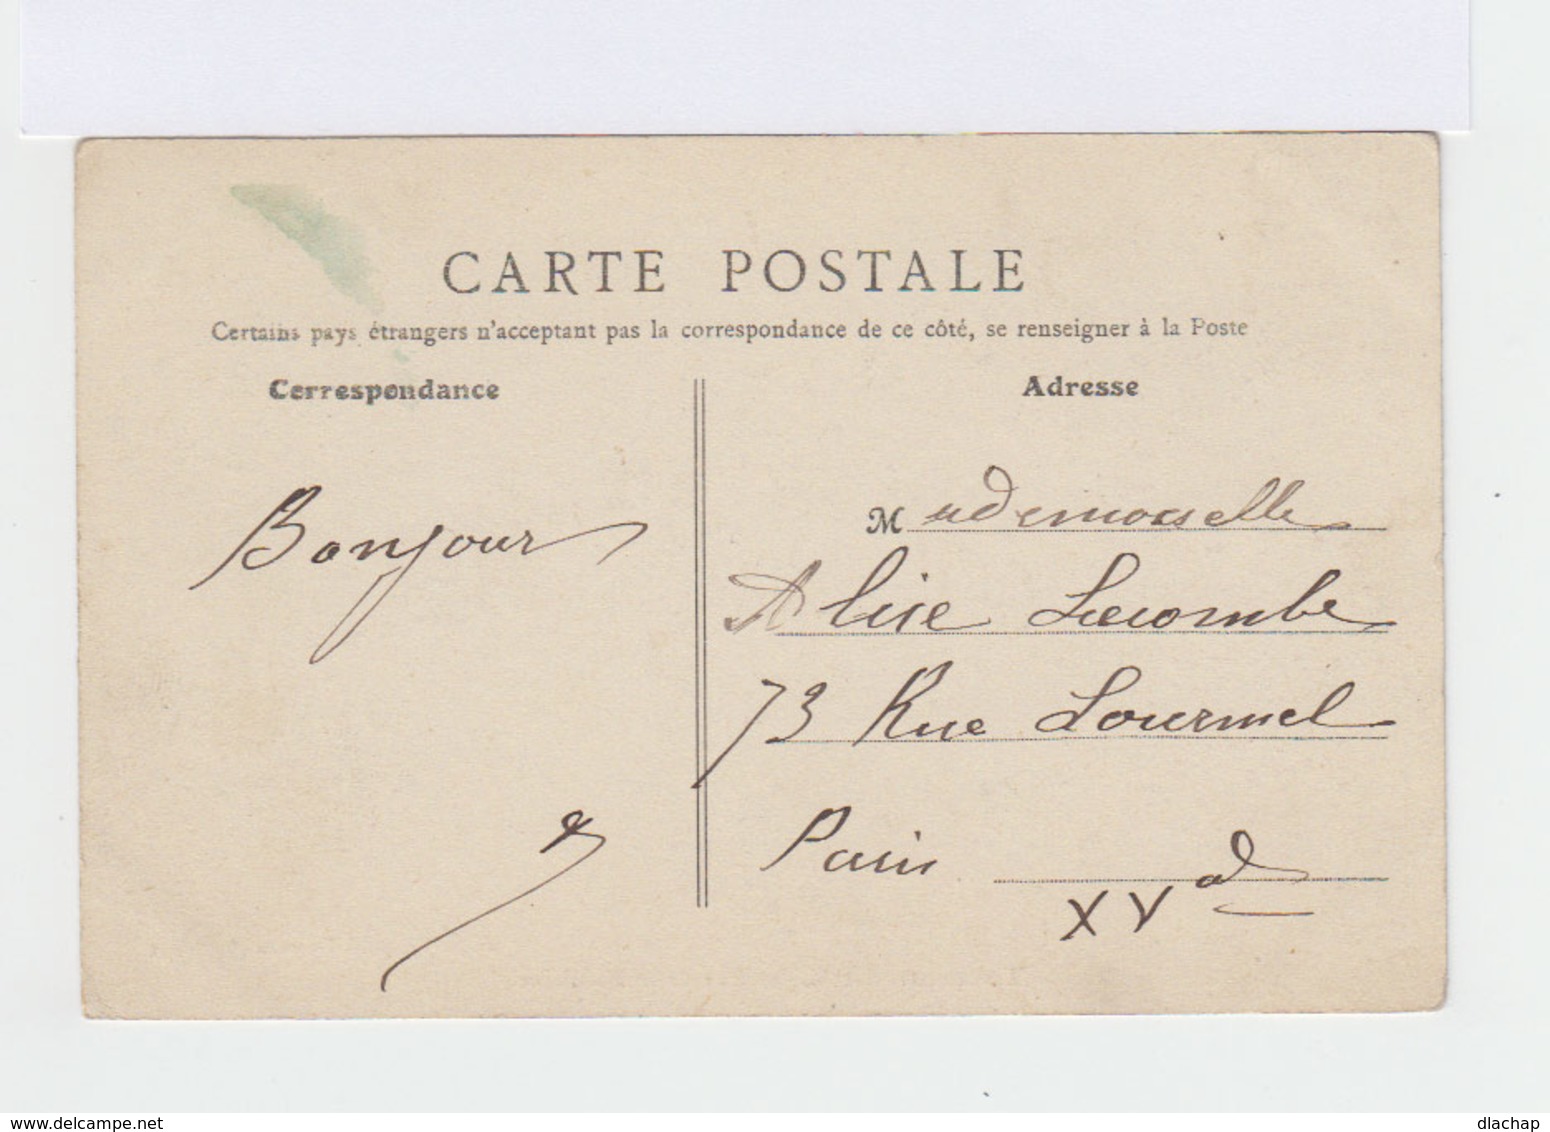 CARTE POSTALE
Certains pays étrangers n'acceptant pas la correspondance de ce côté, se renseigner à la Poste
Correspondance
Adresse
Bonjour
Mademoiselle
Alice Lacombe
73 Rue Lourmel
Paris
XV
dlachap